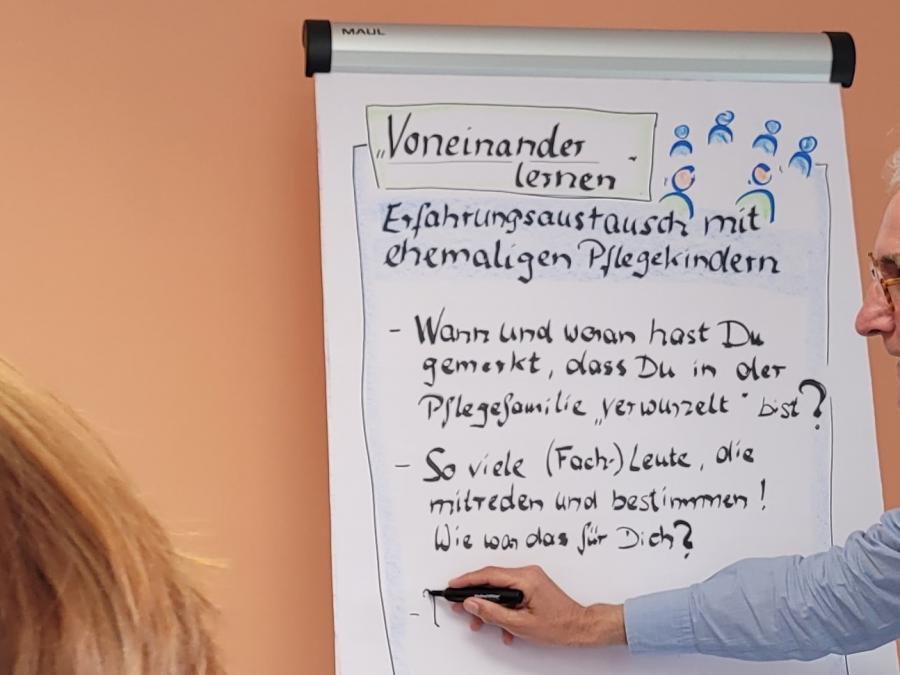 MAUL
„Voneinander
lernen"
Erfahrungsaustausch mit
ehemaligen Pflegekindern
- Wann und woran hast Du
gemerkt, dass Du in der
Pflegefamilie „verwurzelt" bist?
- So viele (Fach-)Leute, die
mitreden und bestimmen!
Wie war das für Dich?
-